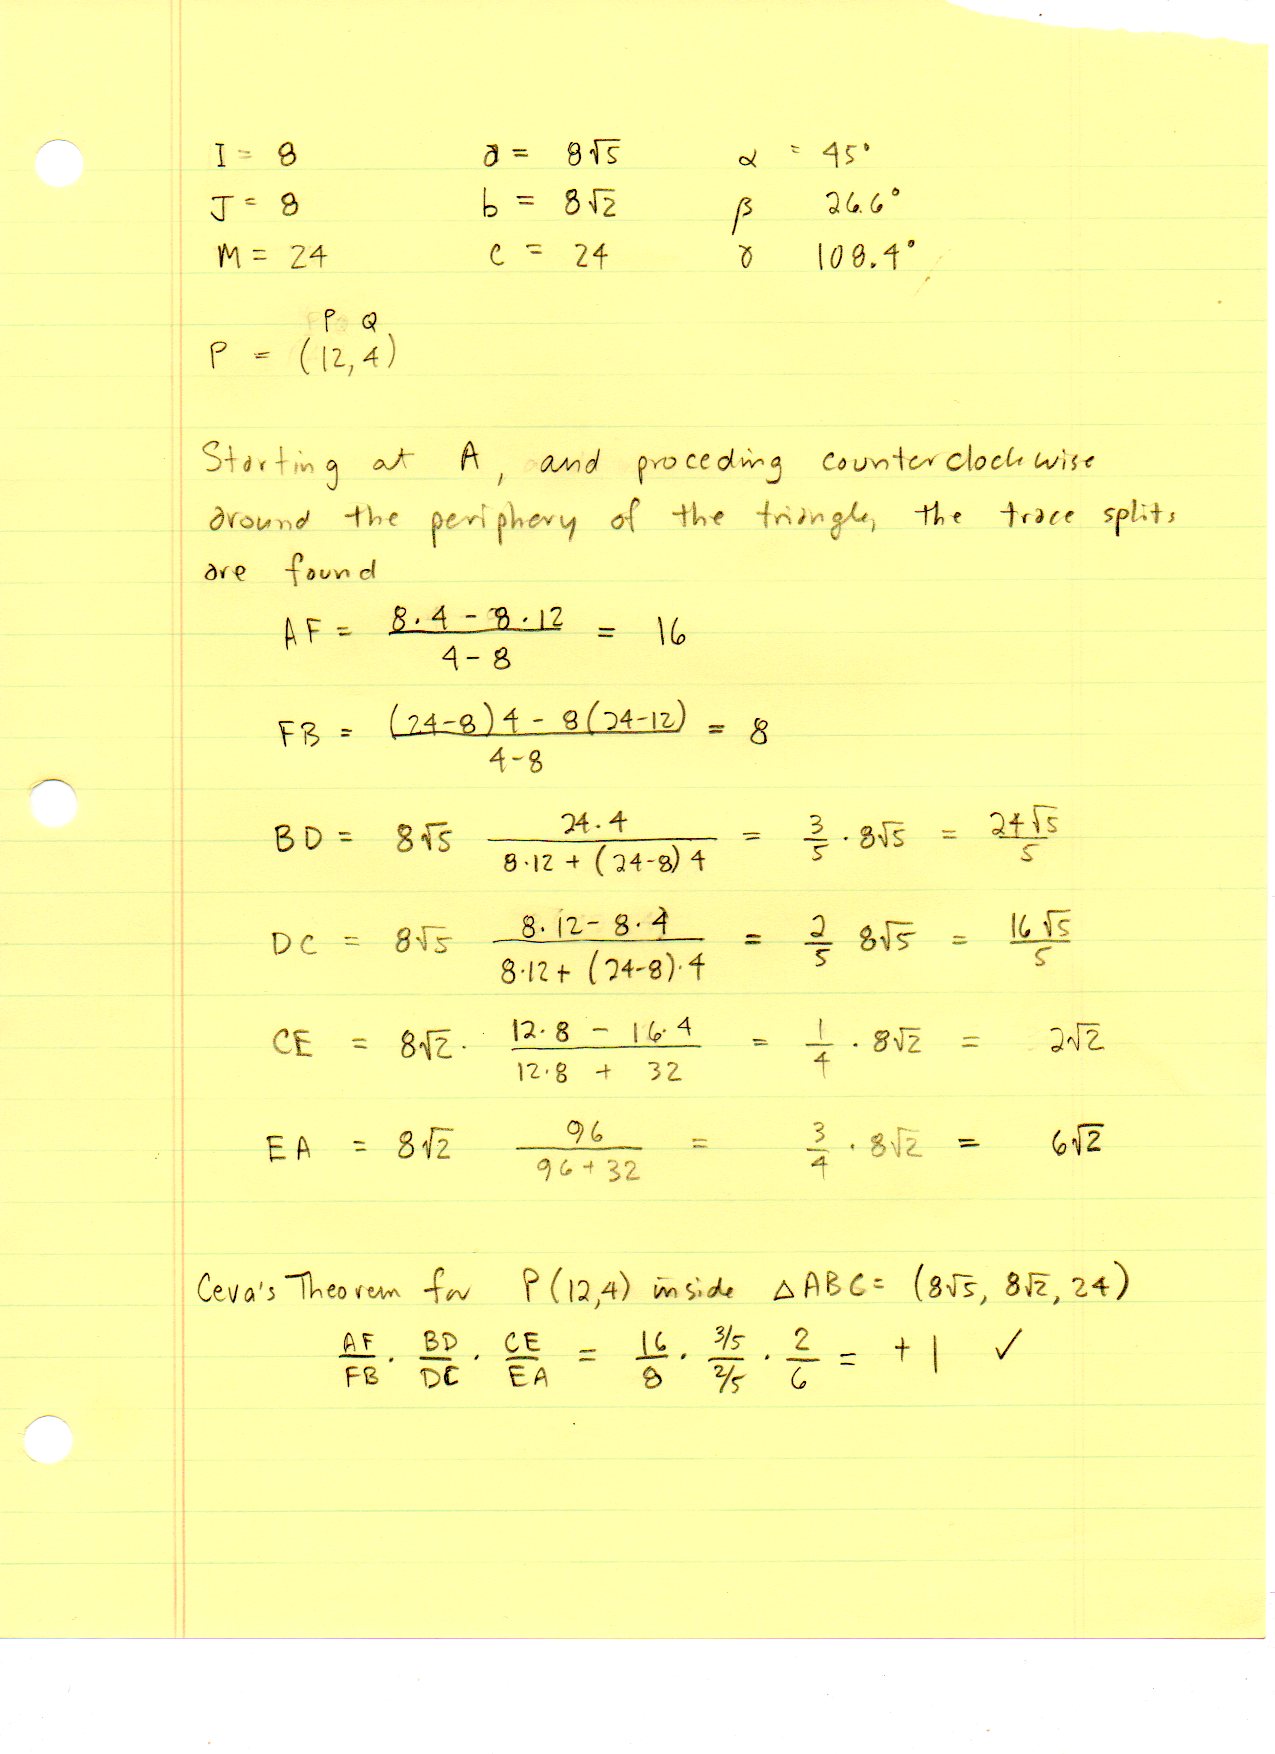 I = 8 a = 8√5 α = 45°
J = 8 b = 8√2 β 26.6°
M = 24 c = 24 γ 108.4°
P Q
P = (12, 4)
Starting at A, and proceding counterclockwise
around the periphery of the triangle, the trace splits
are found
AF = (8·4 - 8·12)/(4-8) = 16
FB = ((24-8)4 - 8(24-12))/(4-8) = 8
BD = 8√5 (24·4)/(8·12 + (24-8)4) = 3/5 · 8√5 = 24√5/5
DC = 8√5 (8·12 - 8·4)/(8·12 + (24-8)·4) = 2/5 8√5 = 16√5/5
CE = 8√2 · (12·8 - 16·4)/(12·8 + 32) = 1/4 · 8√2 = 2√2
EA = 8√2 96/(96+32) = 3/4 · 8√2 = 6√2
Ceva's Theorem for P(12,4) inside △ABC = (8√5, 8√2, 24)
AF/FB · BD/DC · CE/EA = 16/8 · (3/5)/(2/5) · 2/6 = +1 ✓